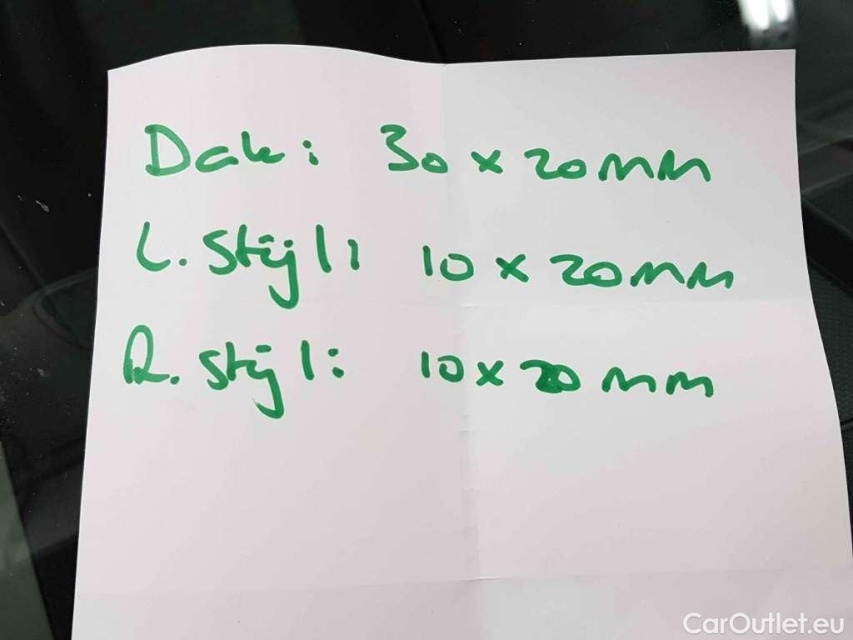 Dak: 30 x 20 mm
L. stijl: 10 x 20 mm
R. stijl: 10 x 20 mm
CarOutlet.eu